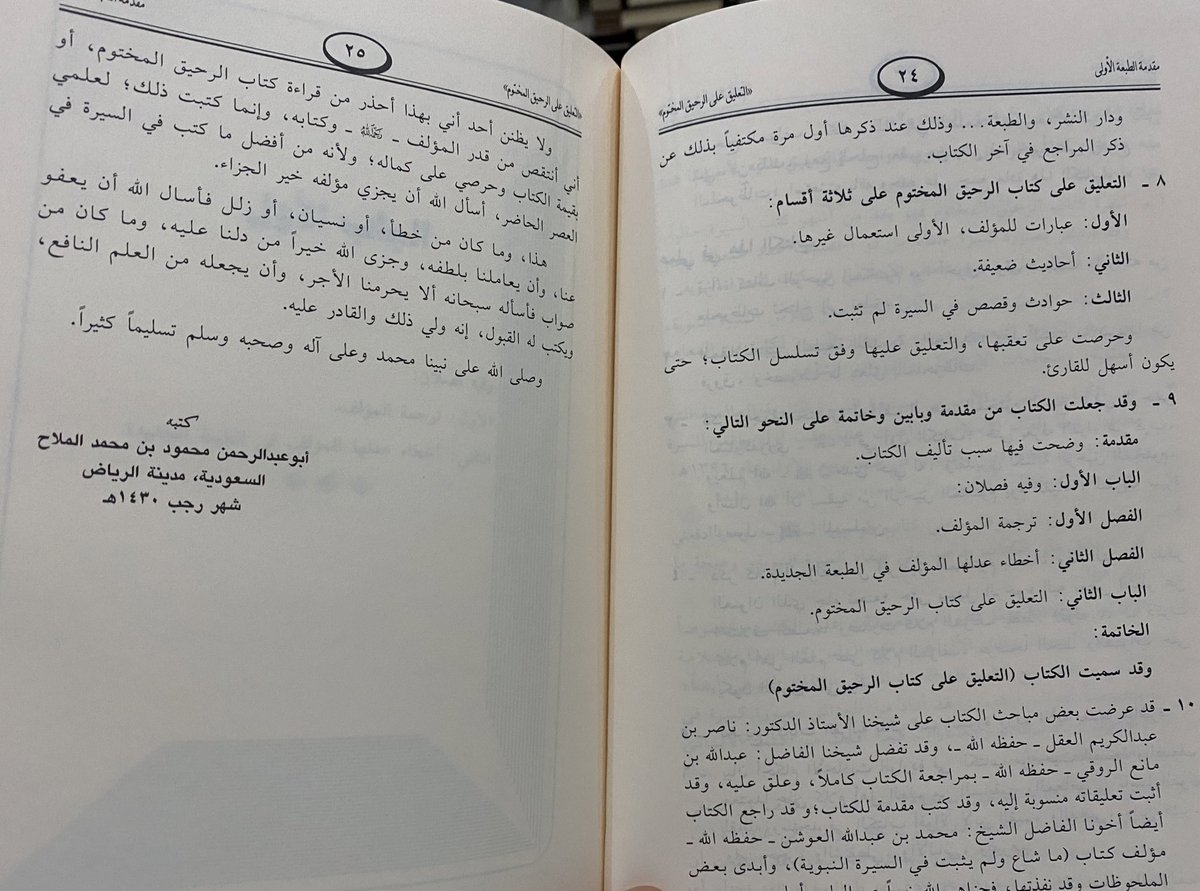 مقدمة الطبعة الأولى
٢٤
«التعليق على الرحيق المختوم»
ودار النشر، والطبعة... وذلك عند ذكرها أول مرة مكتفياً بذلك عن
ذكر المراجع في آخر الكتاب.
٨ ـ التعليق على كتاب الرحيق المختوم على ثلاثة أقسام:
الأول: عبارات للمؤلف، الأولى استعمال غيرها.
الثاني: أحاديث ضعيفة.
الثالث: حوادث وقصص في السيرة لم تثبت.
وحرصت على تعقبها، والتعليق عليها وفق تسلسل الكتاب؛ حتى
يكون أسهل للقارئ.
٩ ـ وقد جعلت الكتاب من مقدمة وبابين وخاتمة على النحو التالي:
مقدمة: وضحت فيها سبب تأليف الكتاب.
الباب الأول: وفيه فصلان:
الفصل الأول: ترجمة المؤلف.
الفصل الثاني: أخطاء عدلها المؤلف في الطبعة الجديدة.
الباب الثاني: التعليق على كتاب الرحيق المختوم.
الخاتمة:
وقد سميت الكتاب (التعليق على كتاب الرحيق المختوم)
١٠ ـ قد عرضت بعض مباحث الكتاب على شيخنا الأستاذ الدكتور: ناصر بن
عبدالكريم العقل ـ حفظه الله ـ، وقد تفضل شيخنا الفاضل: عبدالله بن
مانع الروقي ـ حفظه الله ـ بمراجعة الكتاب كاملاً، وعلق عليه، وقد
أثبت تعليقاته منسوبة إليه، وقد كتب مقدمة للكتاب؛ و قد راجع الكتاب
أيضاً أخونا الفاضل الشيخ: محمد بن عبدالله العوشن ـ حفظه الله ـ
مؤلف كتاب (ما شاع ولم يثبت في السيرة النبوية)، وأبدى بعض
الملحوظات وقد نفذتها، الله
«التعليق على الرحيق المختوم»
٢٥
مقدمة
ولا يظنن أحد أني بهذا أحذر من قراءة كتاب الرحيق المختوم، أو
أني أنتقص من قدر المؤلف ـ رحمه الله ـ وكتابه، وإنما كتبت ذلك؛ لعلمي
بقيمة الكتاب وحرصي على كماله؛ ولأنه من أفضل ما كتب في السيرة في
العصر الحاضر، أسأل الله أن يجزي مؤلفه خير الجزاء.
هذا، وما كان من خطأ، أو نسيان، أو زلل فأسال الله أن يعفو
عنا، وأن يعاملنا بلطفه، وجزى الله خيراً من دلنا عليه، وما كان من
صواب فأسأله سبحانه ألا يحرمنا الأجر، وأن يجعله من العلم النافع،
ويكتب له القبول، إنه ولي ذلك والقادر عليه.
وصلى الله على نبينا محمد وعلى آله وصحبه وسلم تسليماً كثيراً.
كتبه
أبوعبدالرحمن محمود بن محمد الملاح
السعودية، مدينة الرياض
شهر رجب ١٤٣٠هـ